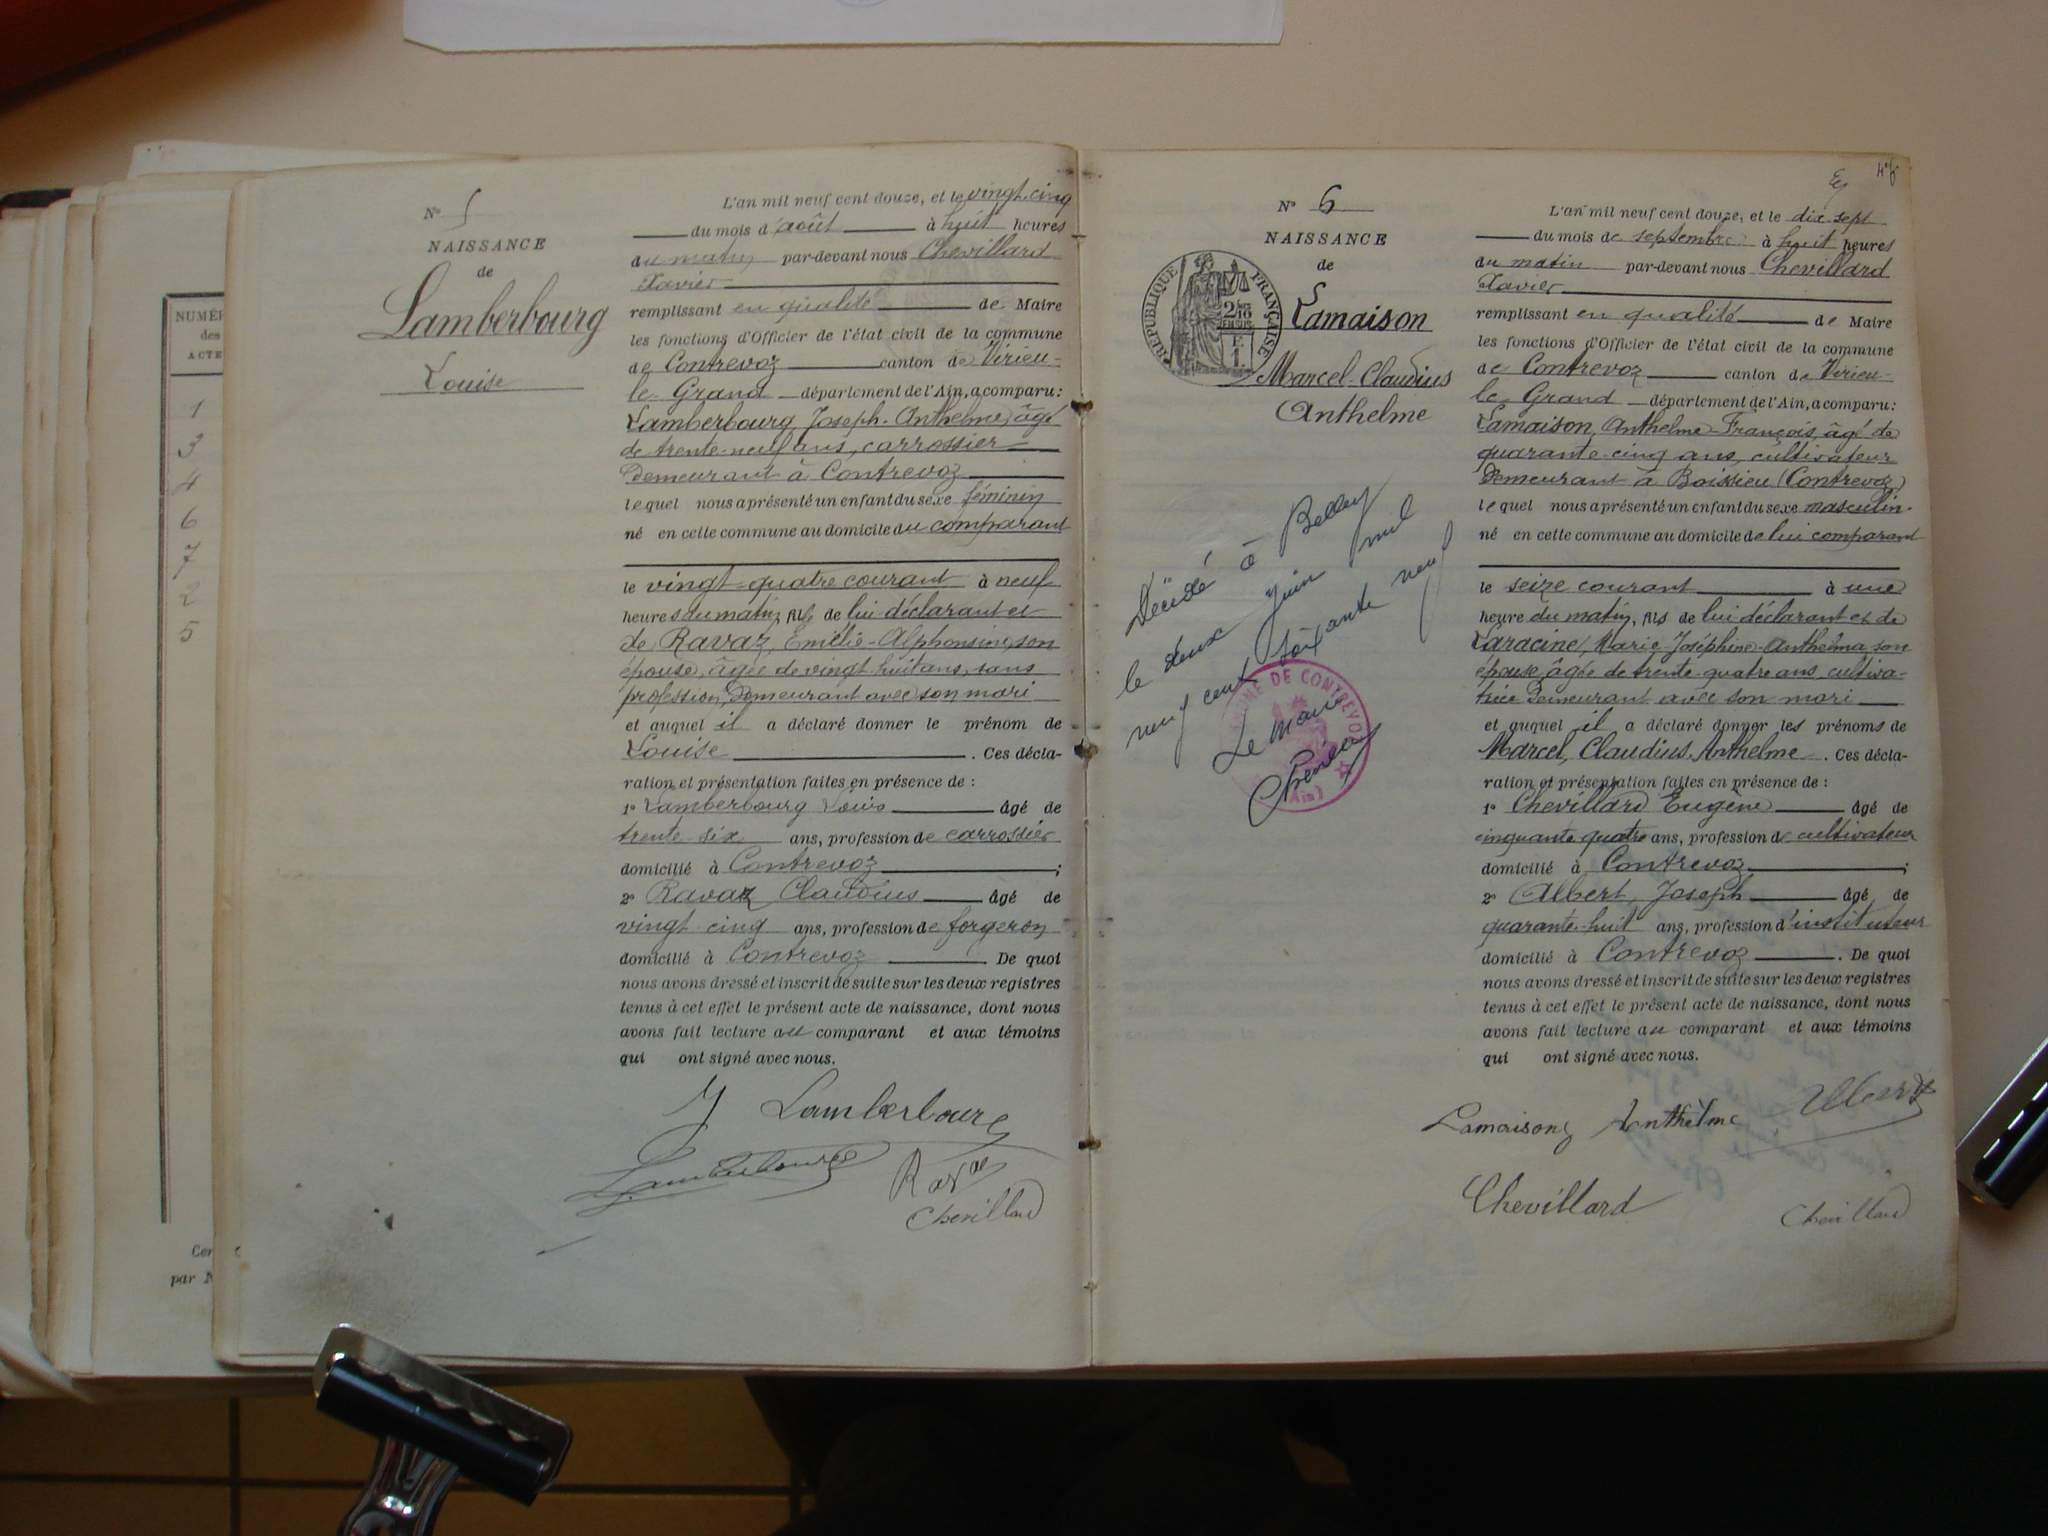 NUMÉR
des
ACTE
1
3
4
6
7
2
5
Cer
par N
N° 5
NAISSANCE
de
Lamberbourg
Louise
L'an mil neuf cent douze, et le vingt-cinq
du mois d'août à huit heures
du matin par-devant nous Chevillard
Xavier
remplissant en qualité de Maire
les fonctions d'Officier de l'état civil de la commune
de Contrevoz canton de Virieu-
le Grand département de l'Ain, a comparu :
Lamberbourg, Joseph-Anthelme, âgé
de trente-neuf ans, carrossier
demeurant à Contrevoz
lequel nous a présenté un enfant du sexe féminin
né en cette commune au domicile du comparant
le vingt-quatre courant à neuf
heures du matin, fils de lui déclarant et
de Ravaz, Emélie-Alphonsine, son
épouse, âgée de vingt huit ans, sans
profession, demeurant avec son mari
et auquel il a déclaré donner le prénom de
Louise . Ces décla-
ration et présentation faites en présence de :
1° Lamberbourg Louis âgé de
trente-six ans, profession de carrossier
domicilié à Contrevoz ;
2° Ravaz Claudius âgé de
vingt-cinq ans, profession de forgeron
domicilié à Contrevoz De quoi
nous avons dressé et inscrit de suite sur les deux registres
tenus à cet effet le présent acte de naissance, dont nous
avons fait lecture au comparant et aux témoins
qui ont signé avec nous.
J Lamberbourg
Lamberbourg Ravaz
Chevillard
N° 6
NAISSANCE
de
RÉPUBLIQUE FRANÇAISE
Lamaison
Marcel-Claudius
Anthelme
Décédé à Belley
le deux Juin mil
neuf cent soixante neuf
Le Maire
COMMUNE DE CONTREVOZ
(Ain)
L'an mil neuf cent douze, et le dix sept
du mois de septembre à huit heures
du matin par-devant nous Chevillard
Xavier
remplissant en qualité de Maire
les fonctions d'Officier de l'état civil de la commune
de Contrevoz canton de Virieu-
le Grand département de l'Ain, a comparu :
Lamaison, Anthelme-François, âgé de
quarante-cinq ans, cultivateur
demeurant à Boissieu (Contrevoz)
lequel nous a présenté un enfant du sexe masculin
né en cette commune au domicile de lui comparant
le seize courant à une
heure du matin, fils de lui déclarant et de
Laracine, Marie-Joséphine-Anthelma, son
épouse, âgée de trente-quatre ans, cultiva-
trice demeurant avec son mari
et auquel il a déclaré donner les prénoms de
Marcel, Claudius, Anthelme . Ces décla-
ration et présentation faites en présence de :
1° Chevillard Eugène âgé de
cinquante quatre ans, profession de cultivateur
domicilié à Contrevoz ;
2° Albert, Joseph âgé de
quarante-huit ans, profession d'instituteur
domicilié à Contrevoz . De quoi
nous avons dressé et inscrit de suite sur les deux registres
tenus à cet effet le présent acte de naissance, dont nous
avons fait lecture au comparant et aux témoins
qui ont signé avec nous.
Lamaison Anthelme Albert
Chevillard Chevillard